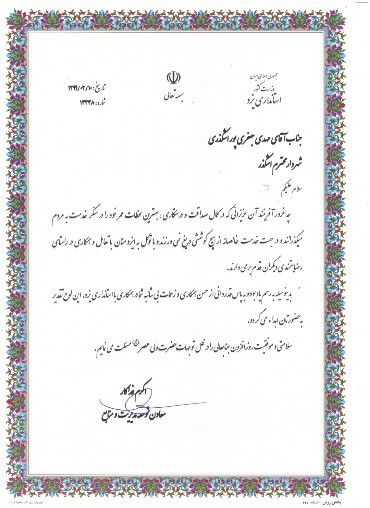 جمهوری اسلامی ایران
وزارت کشور
استانداری یزد
بسمه تعالی
تاریخ: ۱۳۹۹/۰۲/۱۰
شماره: ۱۳۳۳۸
جناب آقای مهدی جعفری پور اشکذری
شهردار محترم اشکذر
سلام علیکم
چه غرور آفرینند آن عزیزانی که در کمال صداقت و درستکاری، بهترین لحظات عمر خود را در سنگر خدمت به مردم
میگذرانند و در جهت خدمت خالصانه از هیچ کوششی دریغ نمی ورزند و با توکل به ایزد منان با تعامل و همکاری در راستای
رضایتمندی دیگران قدم بر می دارند.
بدینوسیله به رسم یادبود و به پاس قدردانی از حسن همکاری و زحمات بی شائبه شما در همکاری با استانداری یزد، این لوح تقدیر
به حضورتان اهداء می گردد.
سلامتی و موفقیت روزافزون جنابعالی را در ظل توجهات حضرت ولی عصر مسئلت می نمایم.
اکرم فداکار
معاون توسعه مدیریت و منابع